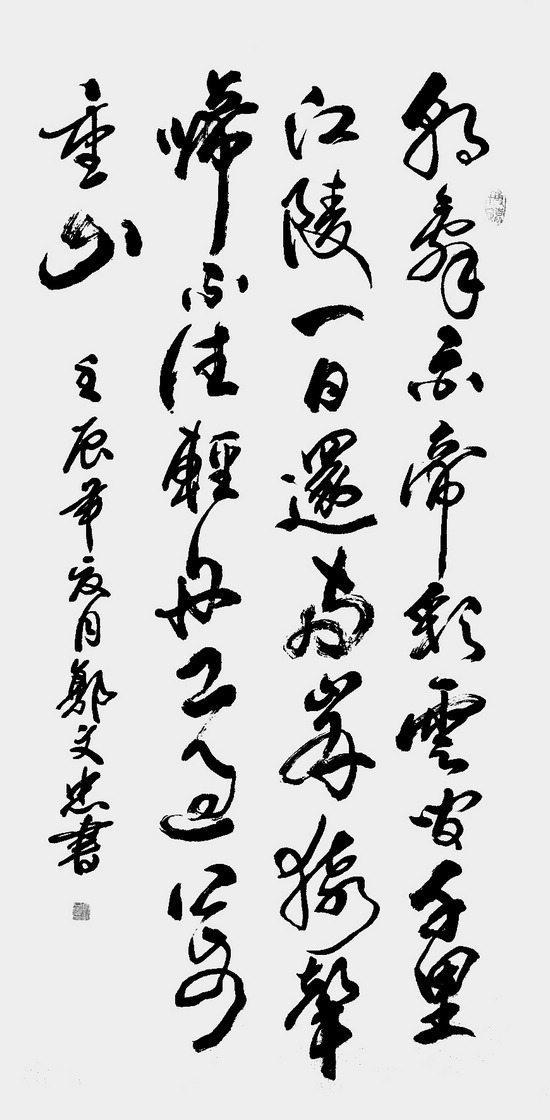 朝辭白帝彩雲間千里
江陵一日還兩岸猿聲
啼不住輕舟已過万
重山
壬辰年夏月鄭文忠書